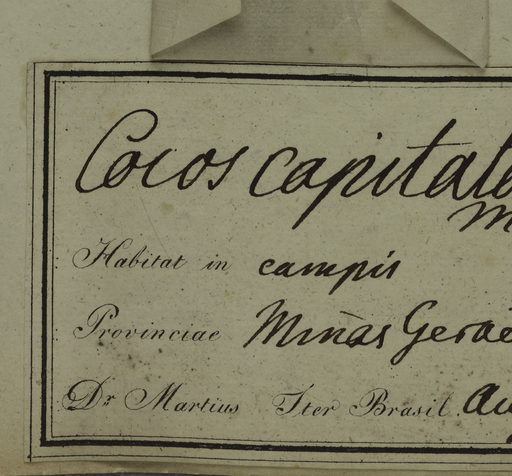 Cocos capitata
M
Habitat in campis
Provinciae Minas Gerae
Dr Martius Iter Brasil. Au